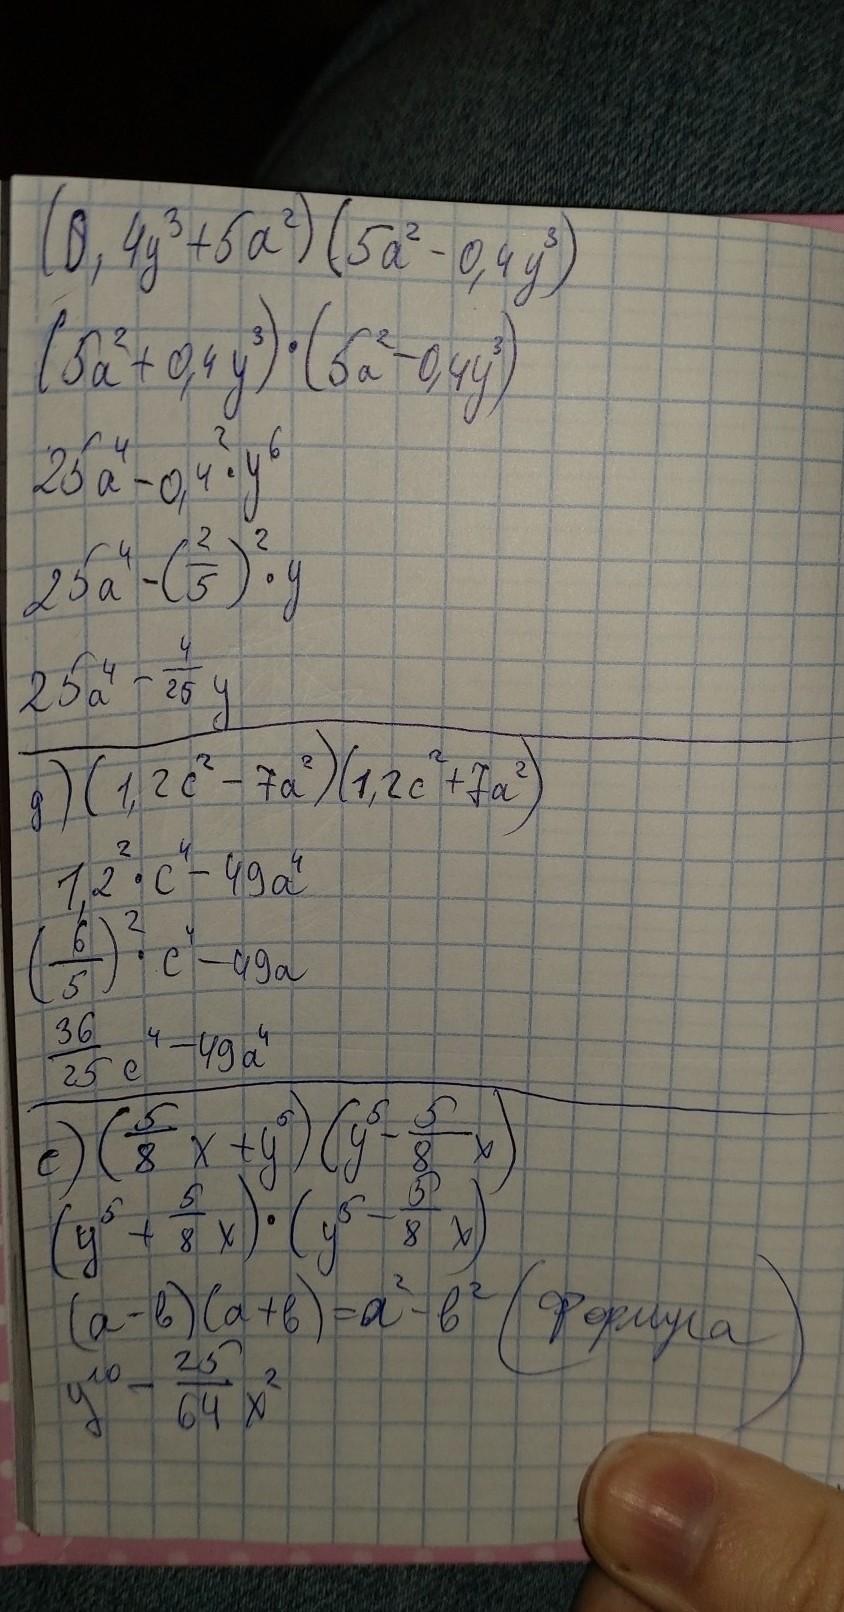 (0,4y³+5a²)(5a²-0,4y³)
(5a²+0,4y³)·(5a²-0,4y³)
25a⁴-0,4²·y⁶
25a⁴-(2/5)²·y
25a⁴-4/25y
д)(1,2c²-7a²)(1,2c²+7a²)
1,2²·c⁴-49a⁴
(6/5)²·c⁴-49a
36/25c⁴-49a⁴
е)(5/8x+y⁵)(y⁵-5/8x)
(y⁵+5/8x)·(y⁵-5/8x)
(а-в)(а+в)=а²-в² (Формула)
y¹⁰-25/64x²